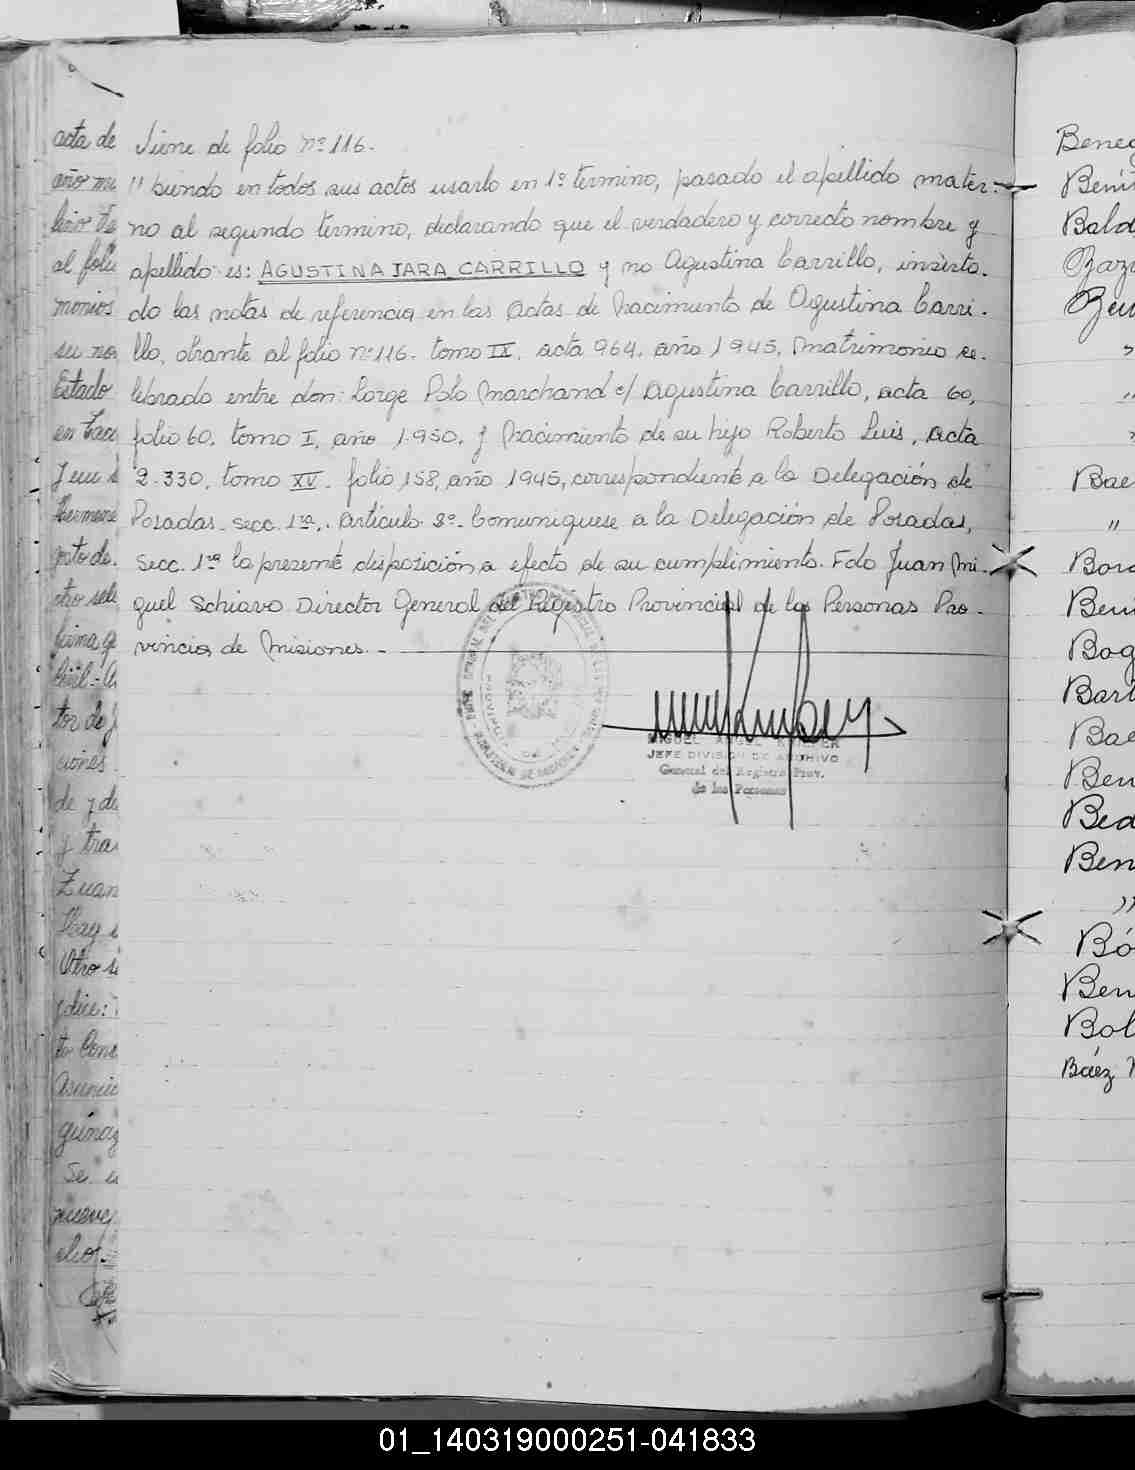 acta de
año mi
al folio
monios
su no
Estado
y en
de y de
y tra
Juan
Hay
Otro s
dice:
Se
nueve
Viene de folio Nº 116.
" biendo en todos sus actos usarlo en 1º término, pasado el apellido mater-
no al segundo término, declarando que el verdadero y correcto nombre y
apellido es: AGUSTINA JARA CARRILLO y no Agustina Carrillo, inserto.
do las notas de referencia en las actas de Nacimiento de Agustina Carri-
llo, obrante al folio nº 116. tomo IX, acta 964, año 1945, Matrimonio ce-
lebrado entre don: Jorge Polo Marchand c/ Agustina Carrillo, acta 60,
folio 60, tomo I, año 1.950, y Nacimiento de su hijo Roberto Luis, acta
2.330, tomo XV. folio 158, año 1945, correspondiente a la Delegación de
Posadas. secc. 1ra,. Artículo 3º. Comuníquese a la Delegación de Posadas,
secc. 1ra la presente disposición a efecto de su cumplimiento. Fdo Juan Mi-
guel Schiavo Director General del Registro Provincial de las Personas Pro-
vincia de Misiones.-
MIGUEL ANGEL KEMPER
JEFE DIVISION DE ARCHIVO
General del Registro Prov.
de las Personas
Bene
Bení
Bald
"
"
Bae
"
Bord
Beni
Bog
Bar
Bae
Ben
Bed
Ben
"
Bó
Ben
Bol
Báez
01_140319000251-041833